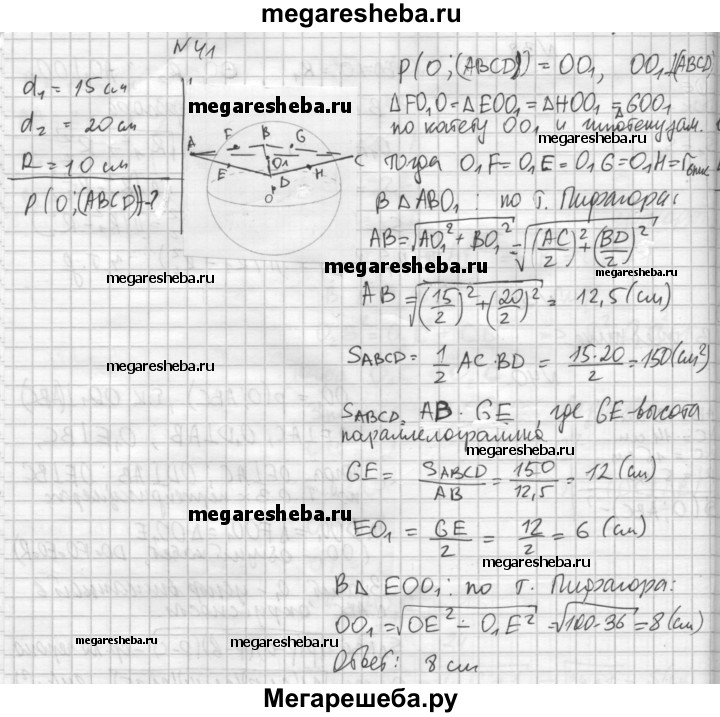 megaresheba.ru
N 41
d₁ = 15 см
d₂ = 20 см
R = 10 см
ρ(O;(ABCD))-?
megaresheba.ru
A F B G C
E O₁ H
D
O
ρ(O;(ABCD)) = OO₁, OO₁⊥(ABCD)
ΔFO₁O = ΔEOO₁ = ΔHOO₁ = ΔGOO₁
по катету OO₁ и гипотенузам.
тогда O₁F = O₁E = O₁G = O₁H = r
В ΔABO₁: по т. Пифагора:
AB = √(AO₁² + BO₁²) = √((AC/2)² + (BD/2)²)
megaresheba.ru
megaresheba.ru
megaresheba.ru
AB = √((15/2)² + (20/2)²) = 12,5 (см)
megaresheba.ru
megaresheba.ru
S_ABCD = 1/2 AC · BD = 15·20/2 = 150 (см²)
S_ABCD = AB · GE, где GE-высота
параллелограмма
GE = S_ABCD/AB = 150/12,5 = 12 (см)
megaresheba.ru
EO₁ = GE/2 = 12/2 = 6 (см)
megaresheba.ru
В Δ EOO₁: по т. Пифагора:
OO₁ = √(OE² − O₁E²) = √(100-36) = 8 (см)
megaresheba.ru
megaresheba.ru
Ответ: 8 см
Мегарешеба.ру